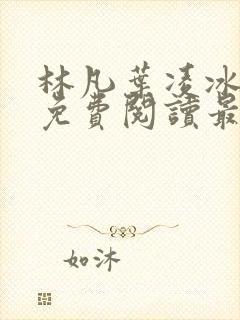 林凡葉凌冰
免費閱讀最
如沐